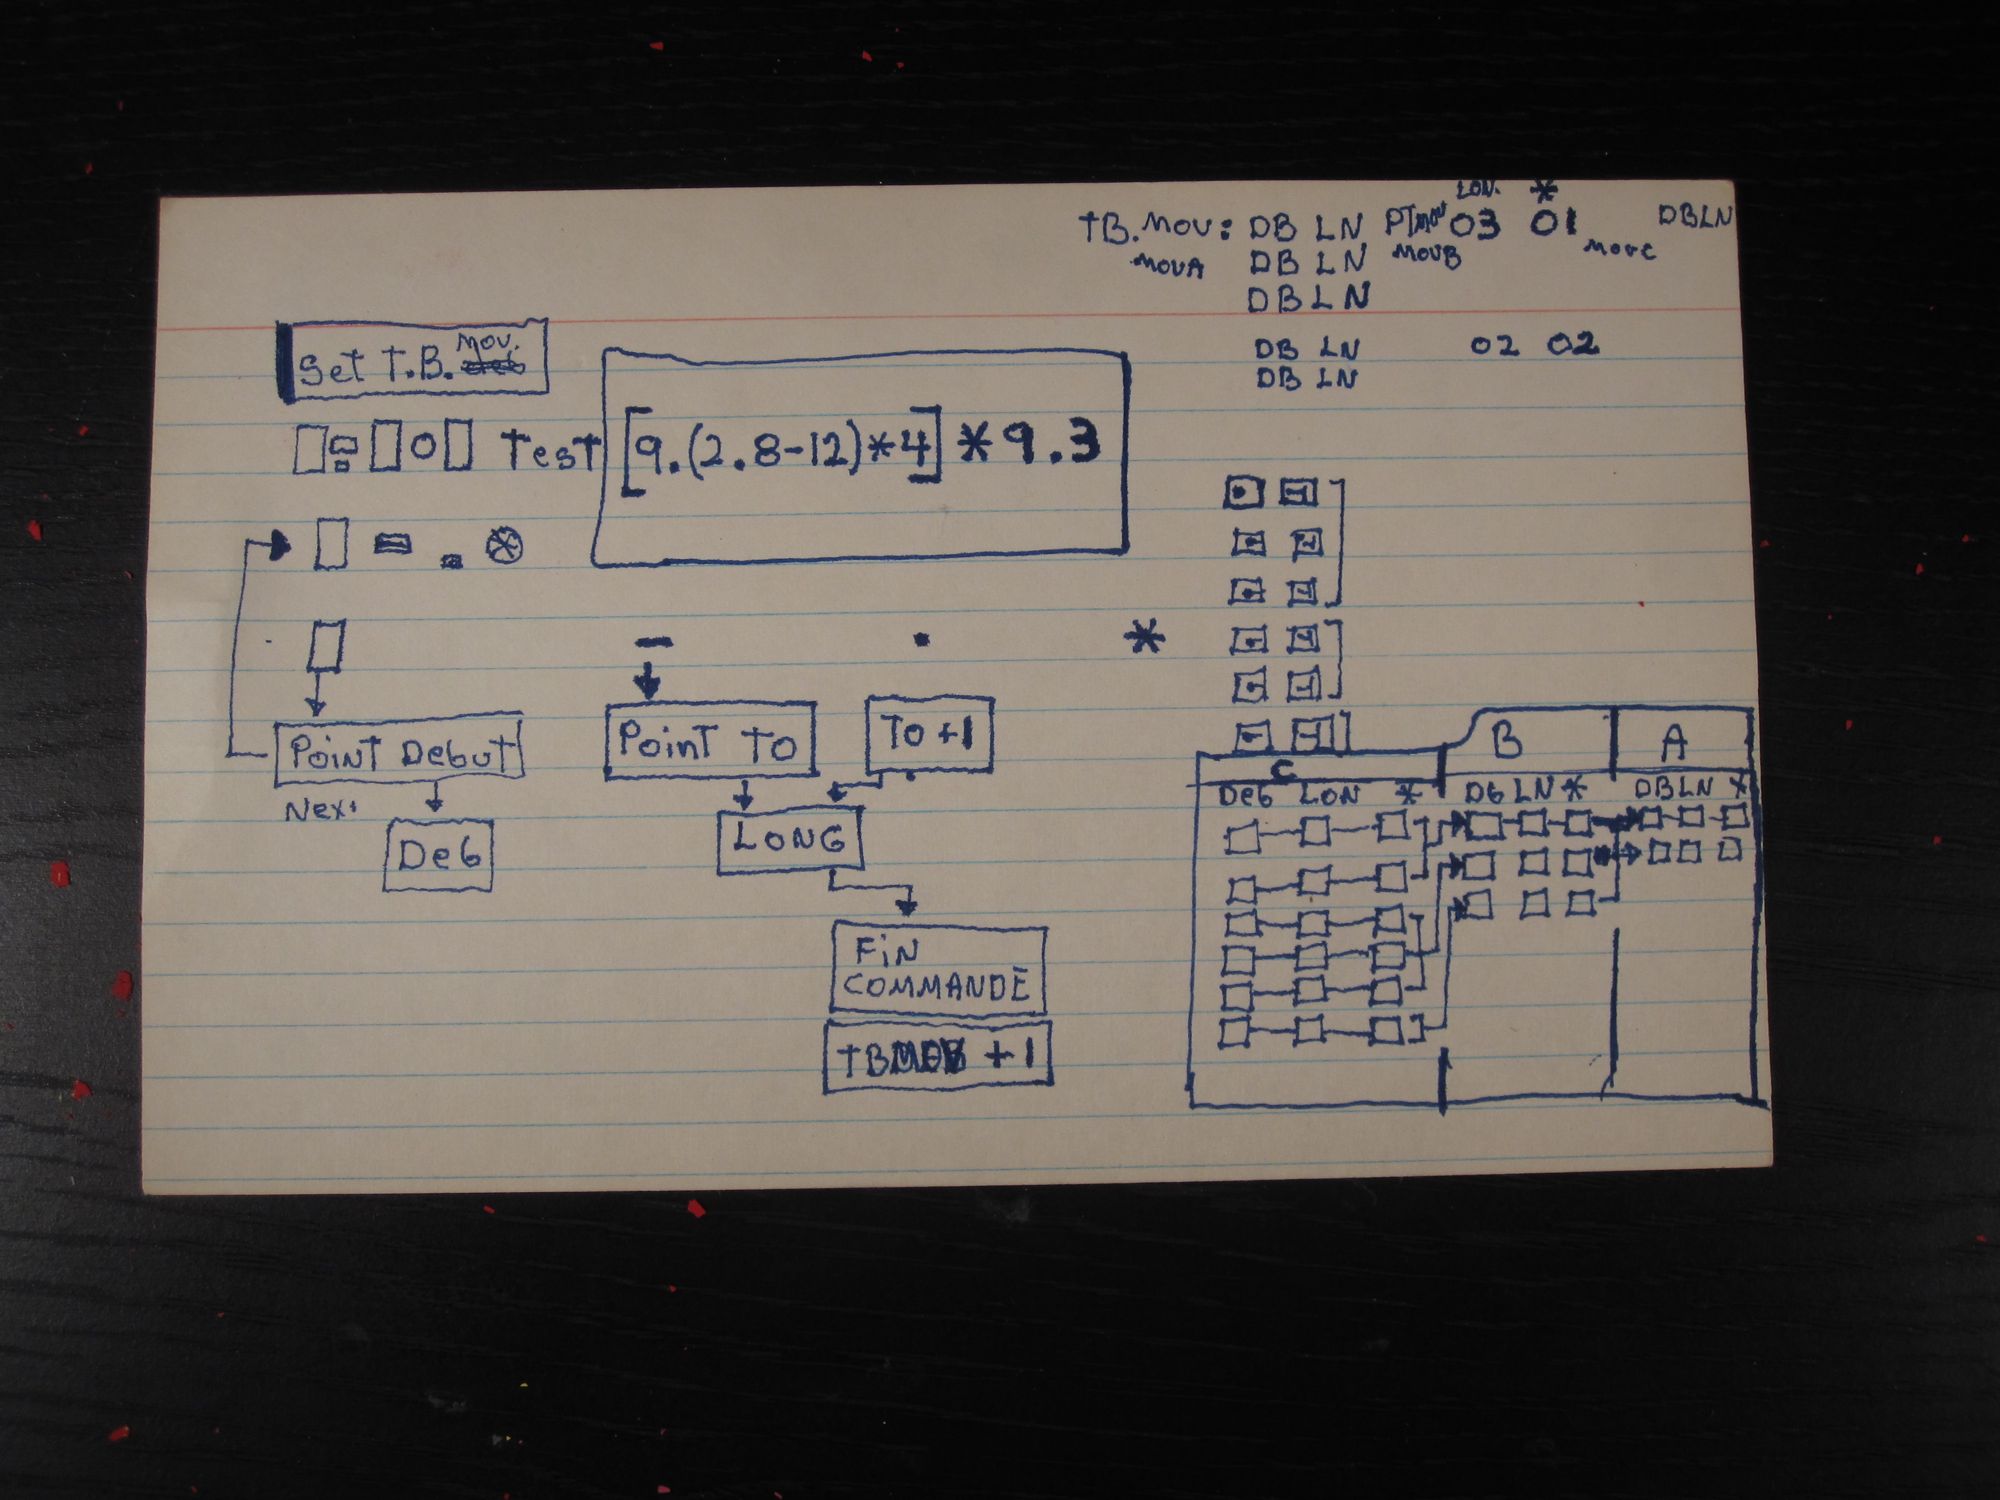 LON. *
TB. MOV: DB LN PTMOV 03 01 DBLN
MOVA DB LN MOVB MOVC
DB LN
DB LN 02 02
DB LN
Set T.B. MOV.
Test [9.(2.8-12)*4] * 9.3
= . *
- . *
Point Debut
Point TO
TO +1
Next
Deb
LONG
FIN
COMMANDE
TBMOV +1
C B A
Deb LON * Db LN * DB LN *